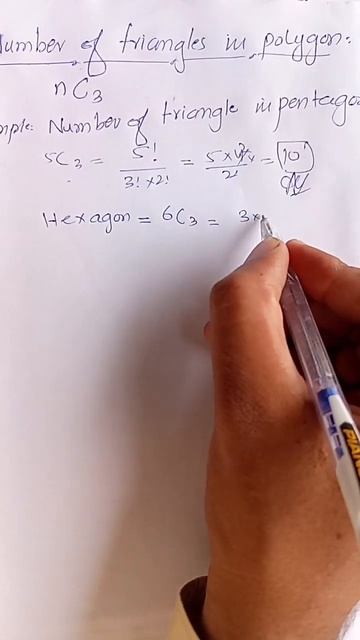 Number of triangles in polygon:
nC3
mple: Number of triangle in pentago
5C3 = 5! / 3! × 2! = 5×4×3 / 2! = 10
Hexagon = 6C3 = 3×
PIAN